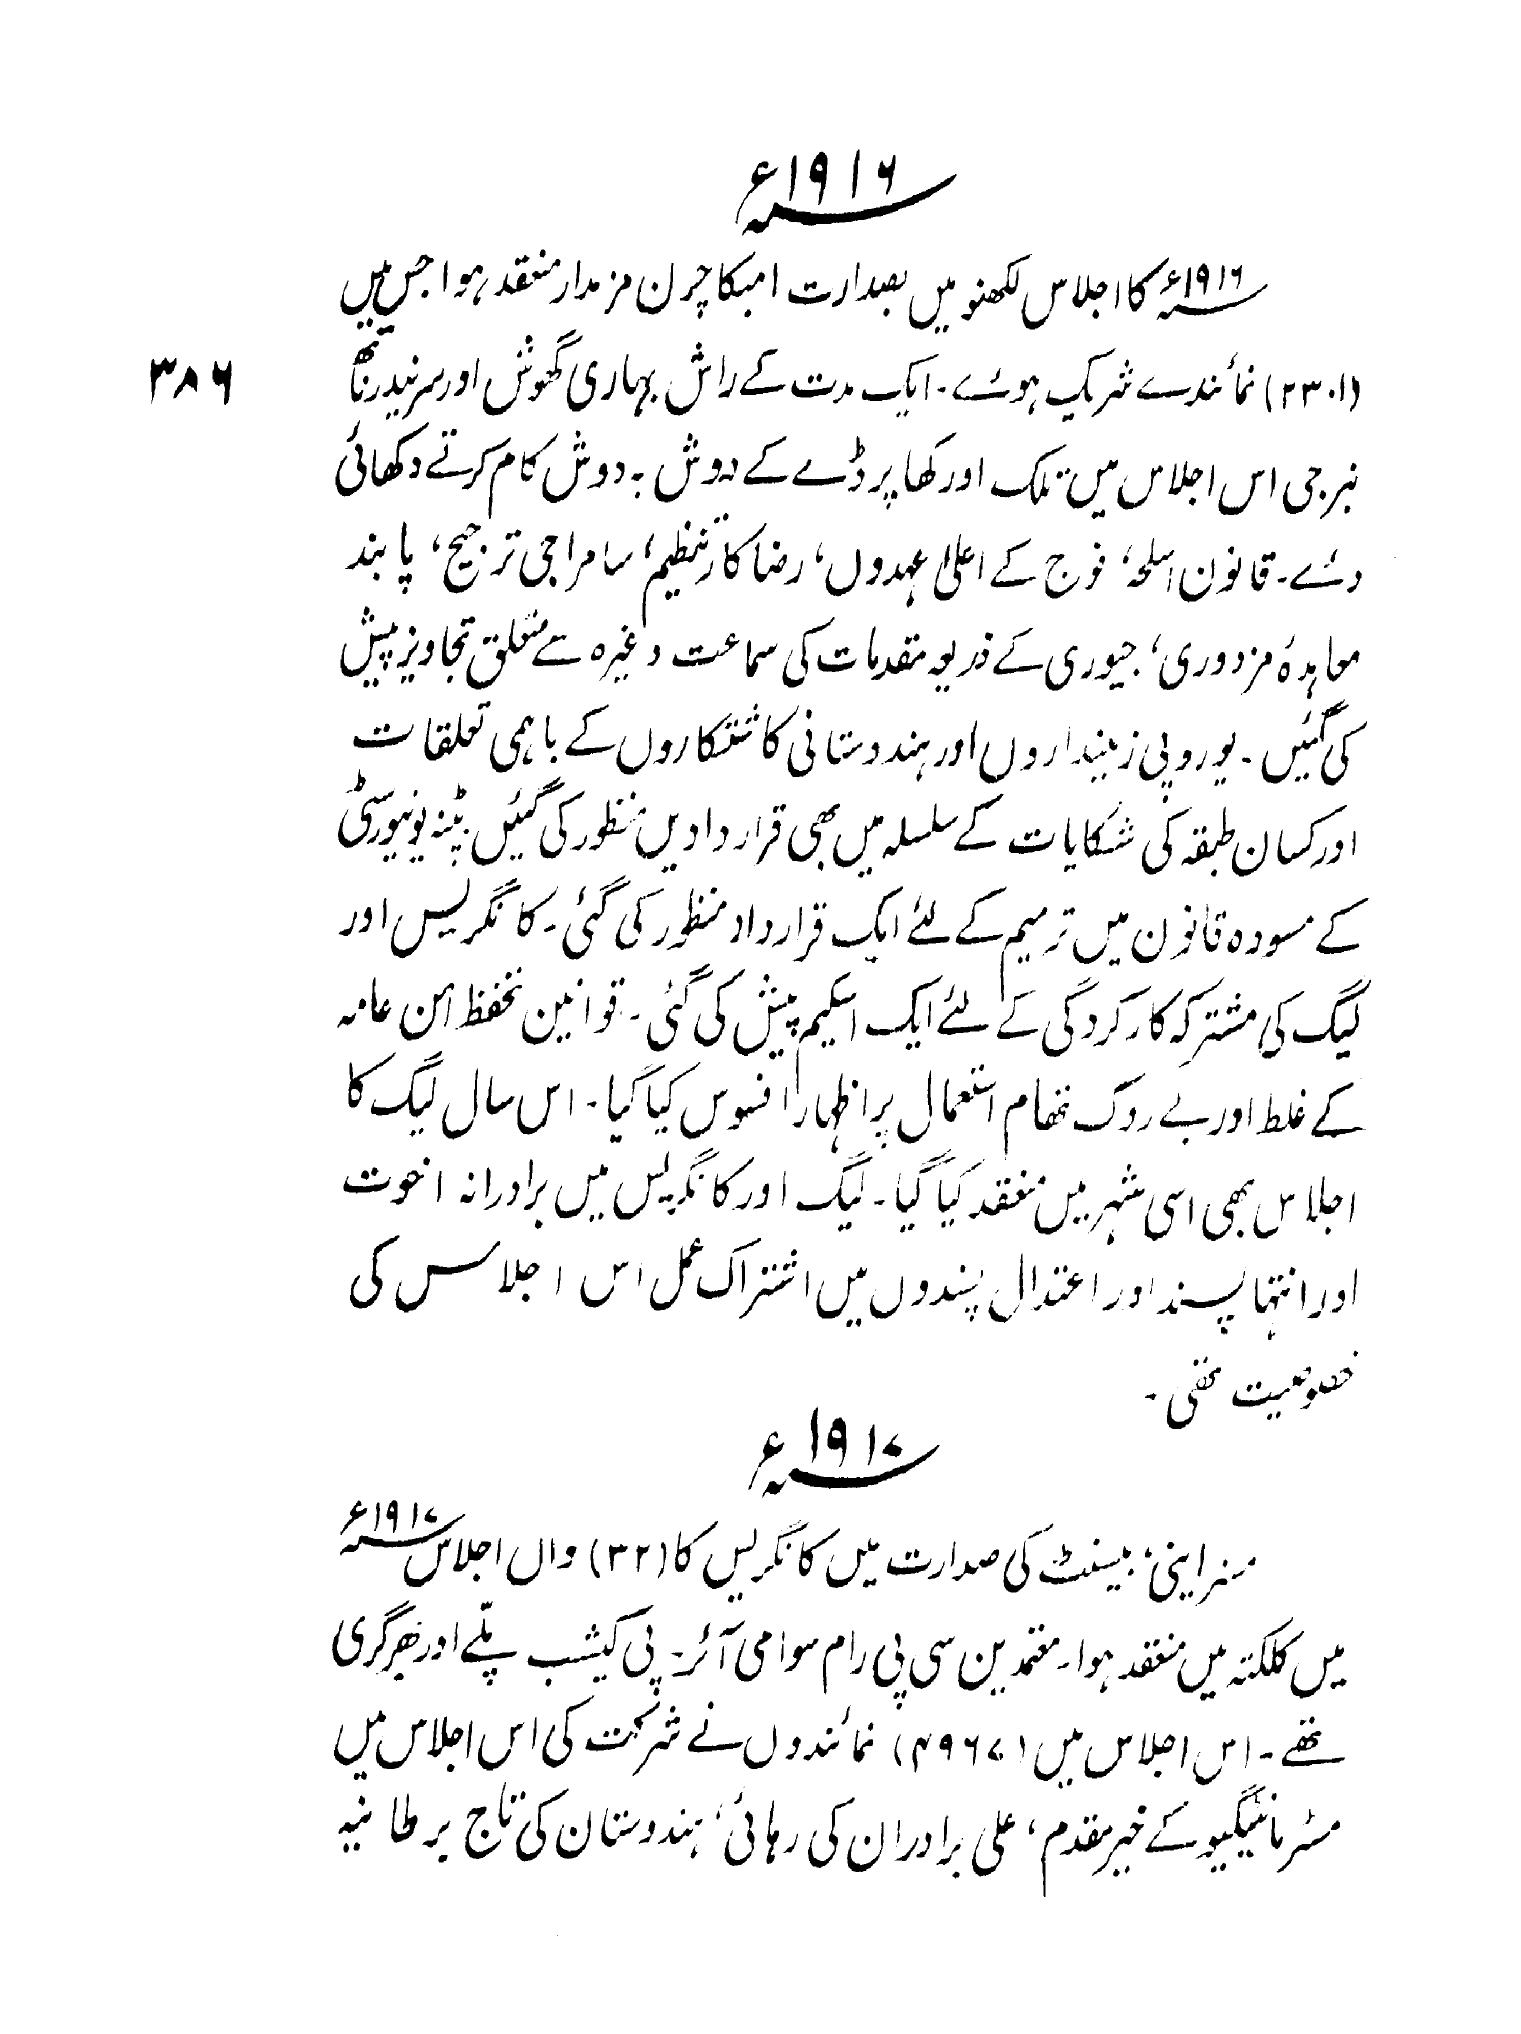 ۱۹۱۶ء
۱۹۱۶ء کا اجلاس لکھنو میں بصدارت امبکا چرن مزمدار منعقد ہوا جس میں
(۲۳۰۱) نمائندے شریک ہوئے۔ ایک مدت کے راش بہاری گھوش اور سرنیدر ناتھ
۳۸۶
بنرجی اس اجلاس میں تلک اور کھاپرڈے کے دوش بہ دوش کام کرتے دکھائی
دئے۔ قانون اسلحہ، فوج کے اعلیٰ عہدوں، رضا کار تنظیم، سامراجی ترجیح، پابند
معاہدۂ مزدوری، جیوری کے ذریعہ مقدمات کی سماعت وغیرہ سے متعلق تجاویز پیش
کی گئیں۔ یوروپی زمینداروں اور ہندوستانی کاشتکاروں کے باہمی تعلقات
اور کسان طبقہ کی شکایات کے سلسلہ میں بھی قراردادیں منظور کی گئیں پٹنہ یونیورسٹی
کے مسودہ قانون میں ترمیم کے لئے ایک قرارداد منظور کی گئی۔ کانگریس اور
لیگ کی مشترکہ کارکردگی کے لئے ایک اسکیم پیش کی گئی۔ قوانین تحفظ امن عامہ
کے غلط اور بے روک تھام استعمال پر اظہار افسوس کیا گیا۔ اس سال لیگ کا
اجلاس بھی اسی شہر میں منعقد کیا گیا۔ لیگ اور کانگریس میں برادرانہ اخوت
اور انتہا پسند اور اعتدال پسندوں میں اشتراک عمل اس اجلاس کی
خصوصیت تھی۔
۱۹۱۷ء
مسز اینی بیسنٹ کی صدارت میں کانگریس کا (۳۲) واں اجلاس ۱۹۱۷ء
میں کلکتہ میں منعقد ہوا۔ معتمدین سی پی رام سوامی آئر۔ پی کیشب پلّے اور بھرگری
تھے۔ اس اجلاس میں (۴۹۶۷) نمائندوں نے شرکت کی اس اجلاس میں
مسٹر مانٹیگیو کے خیر مقدم، علی برادران کی رہائی، ہندوستان کی تاج برطانیہ